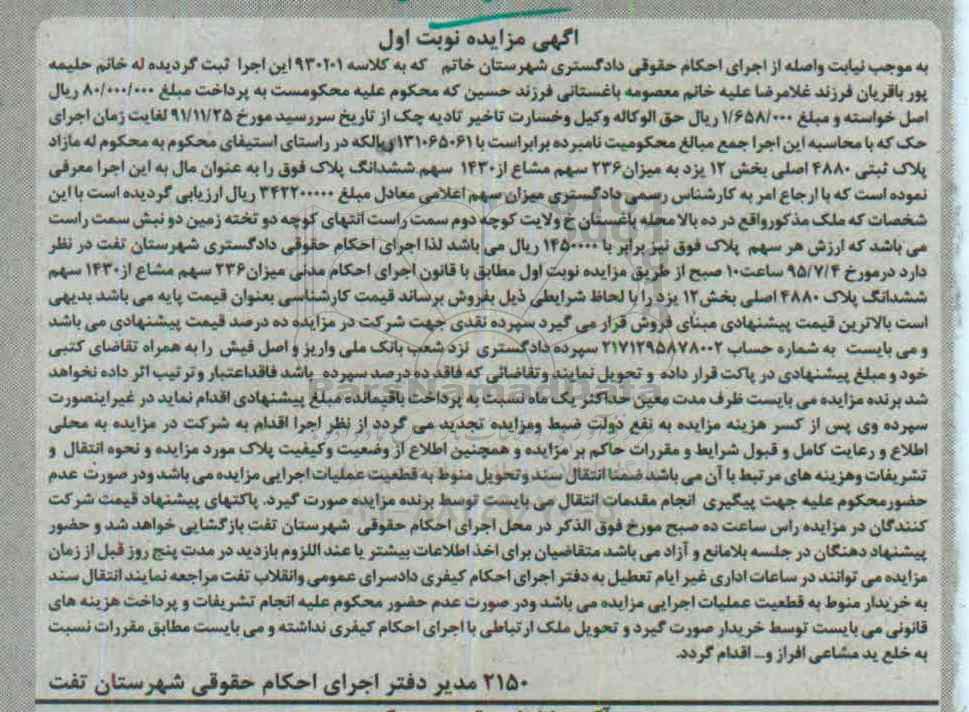 آگهی مزایده نوبت اول
به موجب نیابت واصله از اجرای احکام حقوقی دادگستری شهرستان خاتم که به کلاسه ۹۳۰۲۰۱ این اجرا ثبت گردیده له خانم حلیمه
پور باقریان فرزند غلامرضا علیه خانم معصومه باغستانی فرزند حسین که محکوم علیه محکومست به پرداخت مبلغ ۸۰/۰۰۰/۰۰۰ ریال
اصل خواسته و مبلغ ۱/۶۵۸/۰۰۰ ریال حق الوکاله وکیل وخسارت تاخیر تادیه چک از تاریخ سررسید مورخ ۹۱/۱۱/۲۵ لغایت زمان اجرای
حک که با محاسبه این اجرا جمع مبالغ محکومیت نامبرده برابراست با ۱۳۱۰۶۵۰۶۱ ریالکه در راستای استیفای محکوم به محکوم له مازاد
پلاک ثبتی ۴۸۸۰ اصلی بخش ۱۲ یزد به میزان ۲۳۶ سهم مشاع از ۱۴۳۰ سهم ششدانگ پلاک فوق را به عنوان مال به این اجرا معرفی
نموده است که با ارجاع امر به کارشناس رسمی دادگستری میزان سهم اعلامی معادل مبلغ ۳۴۲۲۰۰۰۰۰ ریال ارزیابی گردیده است با این
شخصات که ملک مذکورواقع در ده بالا محله باغستان خ ولایت کوچه دوم سمت راست انتهای کوچه دو تخته زمین دو نبش سمت راست
می باشد که ارزش هر سهم پلاک فوق نیز برابر با ۱۴۵۰۰۰۰ ریال می باشد لذا اجرای احکام حقوقی دادگستری شهرستان تفت در نظر
دارد درمورخ ۹۵/۷/۴ ساعت ۱۰ صبح از طریق مزایده نوبت اول مطابق با قانون اجرای احکام مدنی میزان ۲۳۶ سهم مشاع از ۱۴۳۰ سهم
ششدانگ پلاک ۴۸۸۰ اصلی بخش ۱۲ یزد را با لحاظ شرایطی ذیل بفروش برساند قیمت کارشناسی بعنوان قیمت پایه می باشد بدیهی
است بالاترین قیمت پیشنهادی مبنای فروش قرار می گیرد سپرده نقدی جهت شرکت در مزایده ده درصد قیمت پیشنهادی می باشد
و می بایست به شماره حساب ۲۱۷۱۲۹۵۸۷۸۰۰۲ سپرده دادگستری نزد شعب بانک ملی واریز و اصل فیش را به همراه تقاضای کتبی
خود و مبلغ پیشنهادی در پاکت قرار داده و تحویل نمایند وتقاضائی که فاقد ده درصد سپرده باشد فاقداعتبار وترتیب اثر داده نخواهد
شد برنده مزایده می بایست ظرف مدت معین حداکثر یک ماه نسبت به پرداخت باقیمانده مبلغ پیشنهادی اقدام نماید در غیراینصورت
سپرده وی پس از کسر هزینه مزایده به نفع دولت ضبط ومزایده تجدید می گردد از نظر اجرا اقدام به شرکت در مزایده به محلی
اطلاع و رعایت کامل و قبول شرایط و مقررات حاکم بر مزایده و همچنین اطلاع از وضعیت وکیفیت پلاک مورد مزایده و نحوه انتقال و
تشریفات وهزینه های مرتبط با آن می باشد ضمنا انتقال سند وتحویل منوط به قطعیت عملیات اجرایی مزایده می باشد ودر صورت عدم
حضورمحکوم علیه جهت پیگیری انجام مقدمات انتقال می بایست توسط برنده مزایده صورت گیرد. پاکتهای پیشنهاد قیمت شرکت
کنندگان در مزایده راس ساعت ده صبح مورخ فوق الذکر در محل اجرای احکام حقوقی شهرستان تفت بازگشایی خواهد شد و حضور
پیشنهاد دهنگان در جلسه بلامانع و آزاد می باشد متقاضیان برای اخذ اطلاعات بیشتر یا عند اللزوم بازدید در مدت پنج روز قبل از زمان
مزایده می توانند در ساعات اداری غیر ایام تعطیل به دفتر اجرای احکام کیفری دادسرای عمومی وانقلاب تفت مراجعه نمایند انتقال سند
به خریدار منوط به قطعیت عملیات اجرایی مزایده می باشد ودر صورت عدم حضور محکوم علیه انجام تشریفات و پرداخت هزینه های
قانونی می بایست توسط خریدار صورت گیرد و تحویل ملک ارتباطی با اجرای احکام کیفری نداشته و می بایست مطابق مقررات نسبت
به خلع ید مشاعی افراز و... اقدام گردد.
۲۱۵۰ مدیر دفتر اجرای احکام حقوقی شهرستان تفت
ParsNamadData